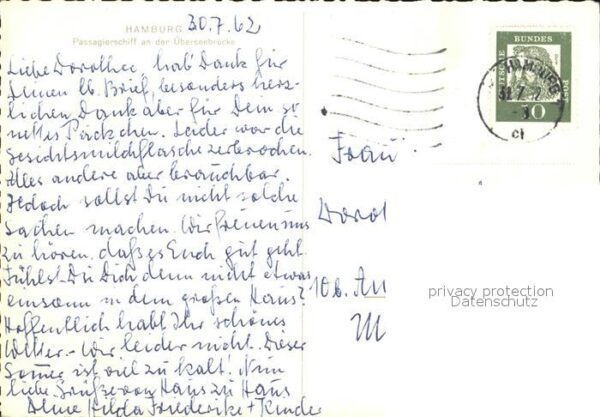 HAMBURG
Passagierschiff an der Überseebrücke
30.7.62
Liebe Dorothee, hab' Dank für
Deinen lb. Brief, besonders herz-
lichen Dank aber für Dein so
nettes Päckchen. Leider war die
Gesichtsmilchflasche zerbrochen.
Alles andere aber brauchbar.
Jedoch sollst Du nicht solche
Sachen machen. Wir freuen uns
zu hören, daß es Euch gut geht.
Fühlst Du Dich denn nicht etwas
einsam in dem großen Haus?
Hoffentlich habt Ihr schönes
Wetter. - Wir leider nicht. Dieser
Sommer ist viel zu kalt! Nun
liebe Grüße von Haus zu Haus
Deine Hilda Friederike + Kinder
DEUTSCHE BUNDESPOST
10
HAMBURG
Frau
Dorot
10b. An
M
privacy protection
Datenschutz